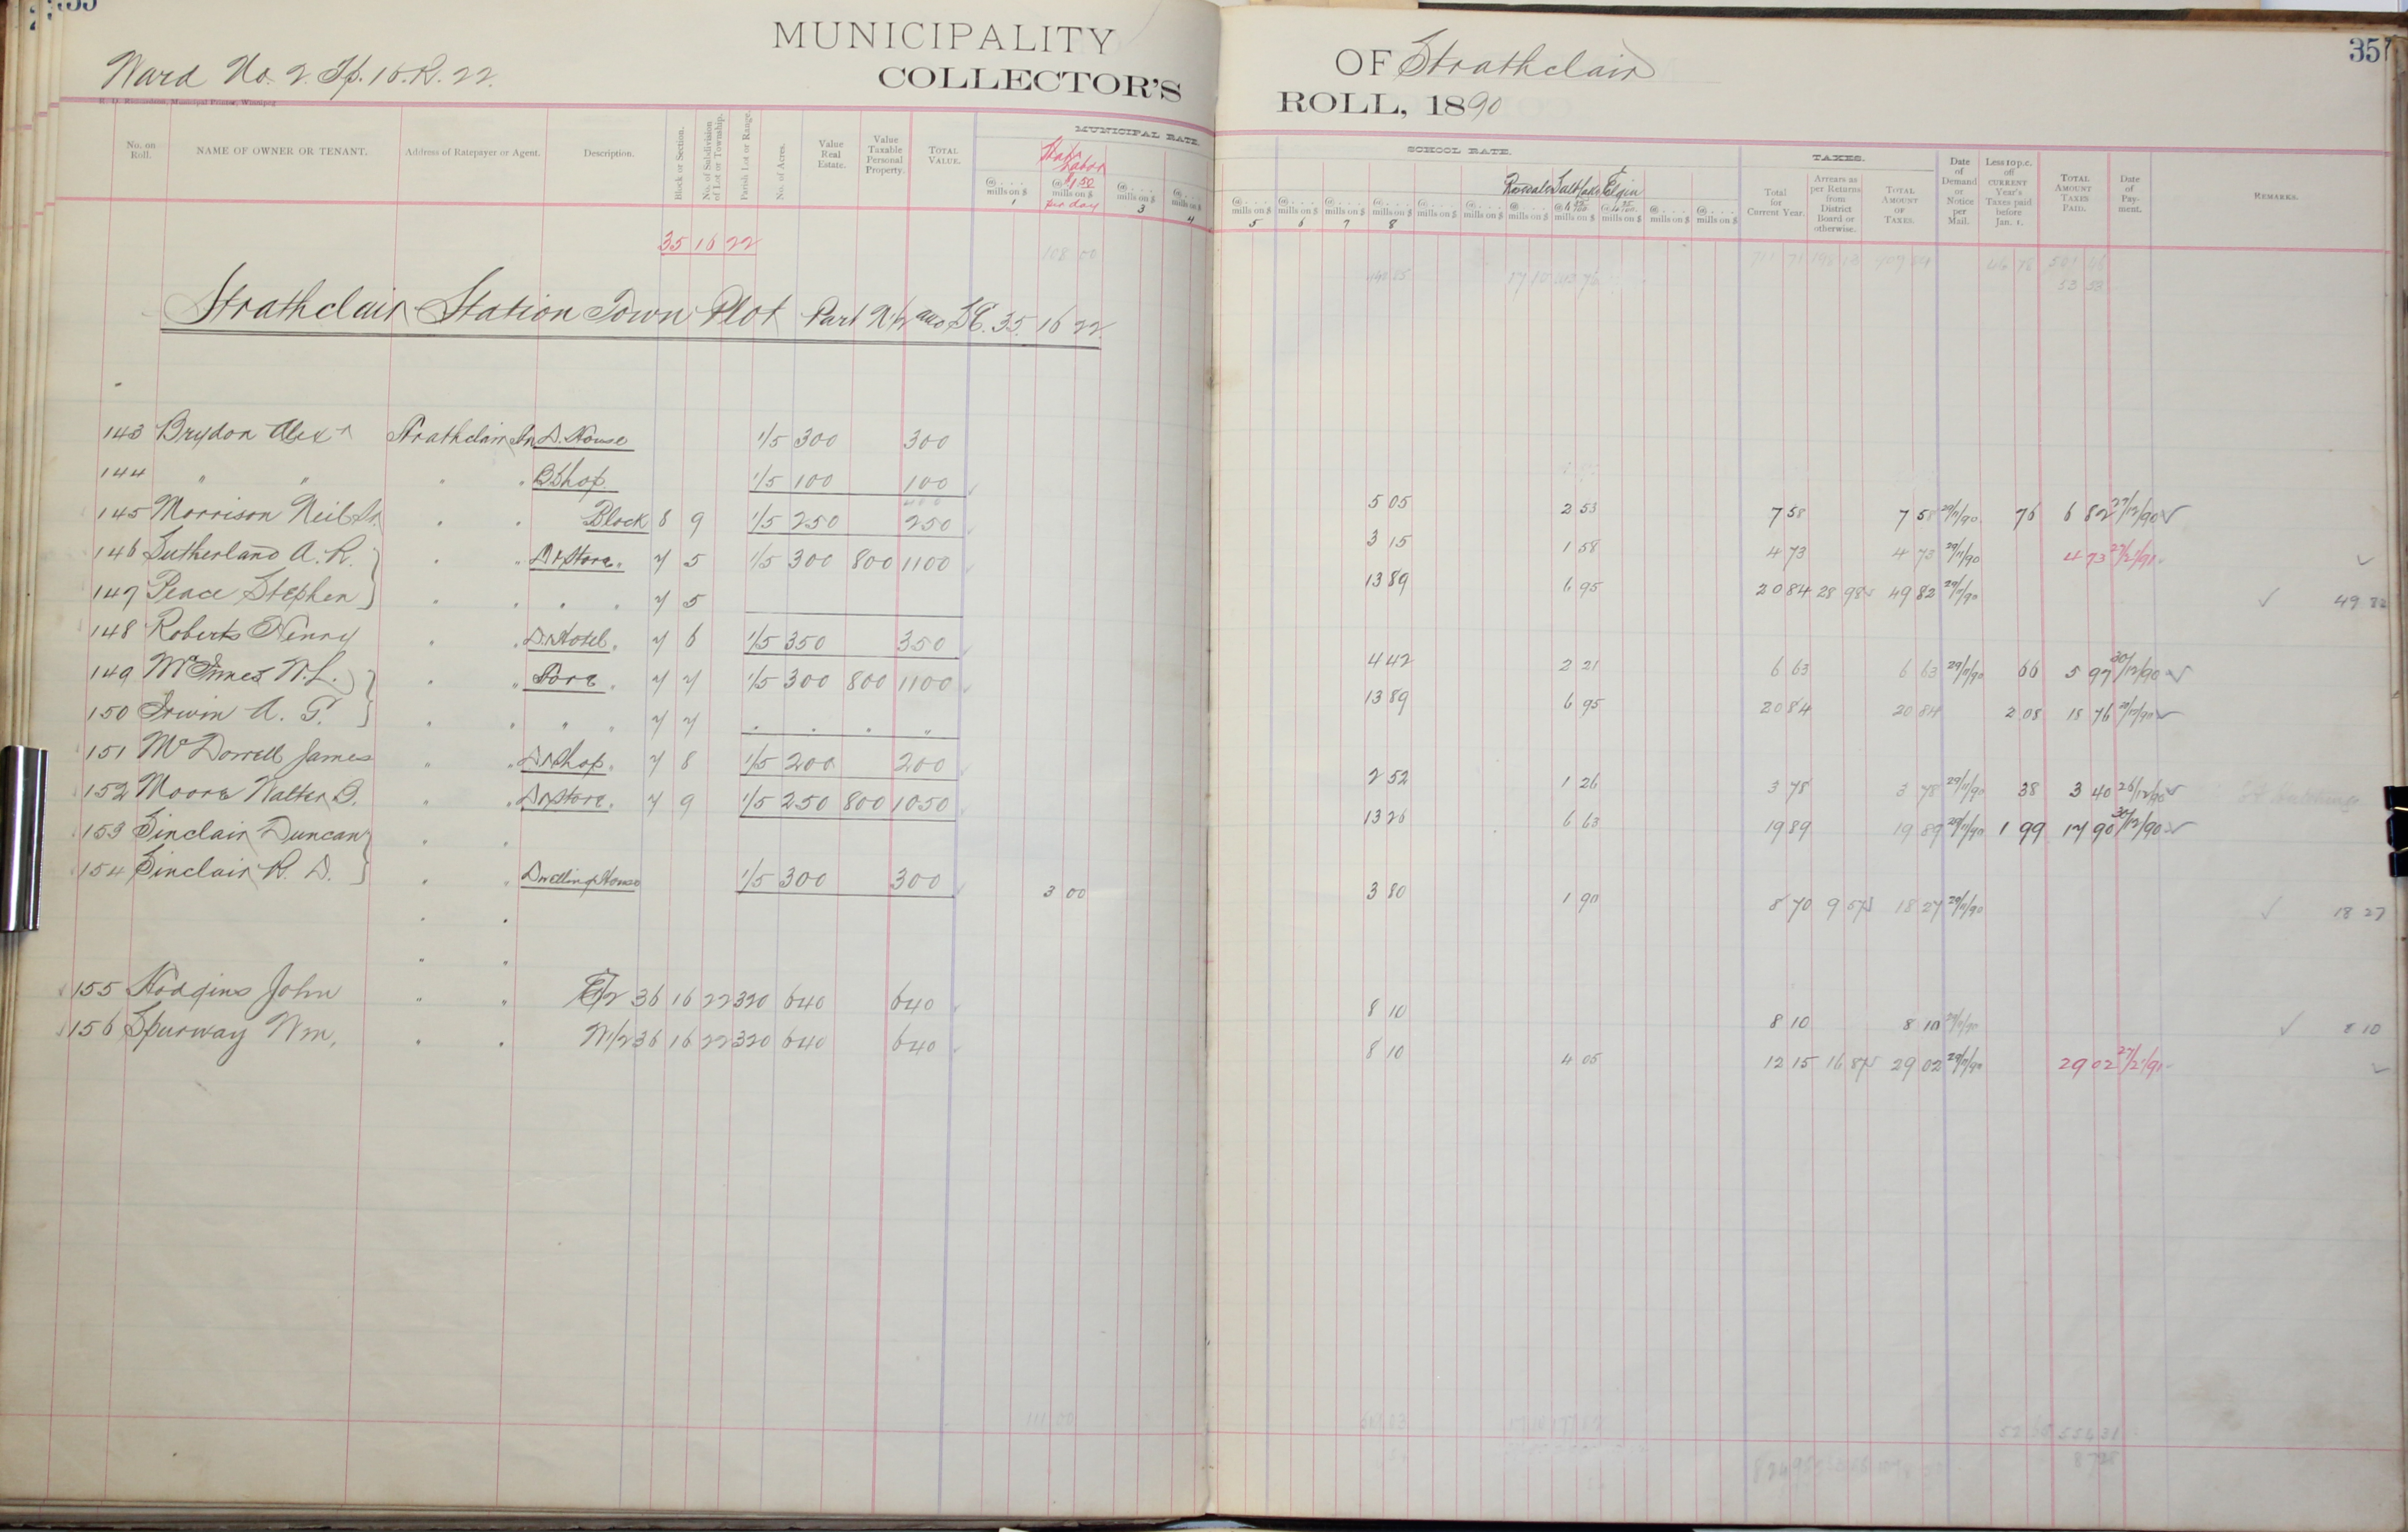 MUNICIPALITY OF Strathclair
Ward No. 2. Tp. 16. R. 22.
COLLECTOR'S ROLL, 1890
357
R. D. Richardson, Municipal Printer, Winnipeg
No. on Roll. NAME OF OWNER OR TENANT. Address of Ratepayer or Agent. Description. Block or Section. No. of Subdivision of Lot or Township. Parish Lot or Range. No. of Acres. Value Real Estate. Value Taxable Personal Property. TOTAL VALUE. MUNICIPAL RATE.
@ . . . mills on $ 1 Labor @ $1.50 mills on $ per day @ . . . mills on $ 3 @ . . . mills on $ 4
SCHOOL RATE.
@ . . . mills on $ 5 @ . . . mills on $ 6 @ . . . mills on $ 7 @ . . . mills on $ 8 @ . . . mills on $ @ . . . mills on $ Rosedale @ . . . mills on $ Salt Lake mills on $ Elgin mills on $ @ . . . mills on $ @ . . . mills on $
TAXES.
Total for Current Year. Arrears as per Returns from District Board or otherwise. TOTAL AMOUNT OF TAXES. Date of Demand or Notice per Mail. Less 10 p.c. off CURRENT Year's Taxes paid before Jan. 1. TOTAL AMOUNT TAXES PAID. Date of Payment. REMARKS.
35 16 22 108 00
Strathclair Station Town Plot Part N 1/2 and SE. 35. 16 22
143 Brydon Alexr Strathclair Sn D. House 1/5 300 300
144 " " " " B Shop. 1/5 100 100
400 5 05 2 53 7 58 7 58 29/11/90 76 6 82 27/12/90
145 Morrison Neil Sr. " " Block 8 9 1/5 250 250 3 15 1 58 4 73 4 73 29/11/90 4 73
146 Sutherland A. R. " " D & Store " 7 5 1/5 300 800 1100 13 89 6 95 20 84 28 98 49 82 29/11/90 49 82
147 Peace Stephen " " " " 7 5
148 Roberts Henry " " D. Hotel " 7 6 1/5 350 350 4 42 2 21 6 63 6 63 29/11/90 66 5 97 30/12/90
149 McInnes W. L. " " Store " 7 7 1/5 300 800 1100 13 89 6 95 20 84 20 84 2 08 18 76
150 Irwin A. G. " " " " 7 7 " " " "
151 McDorrell James " " D & Shop " 7 8 1/5 200 200 2 52 1 26 3 78 3 78 29/11/90 38 3 40 26/12/90
152 Moore Walter D. " " D & Store " 7 9 1/5 250 800 1050 13 26 6 63 19 89 19 89 29/11/90 1 99 17 90 30/12/90
153 Sinclair Duncan " "
154 Sinclair R. D. " " Dwelling House 1/5 300 300 3 00 3 80 1 90 8 70 9 57 18 27 29/11/90 18 27
" "
" "
155 Hodgins John " " E 1/2 36 16 22 320 640 640 8 10 8 10 8 10 29/11/90 8 10
156 Spurway Wm. " " W 1/2 36 16 22 320 640 640 8 10 4 05 12 15 16 87 29 02 29/11/90 29 02
111 00